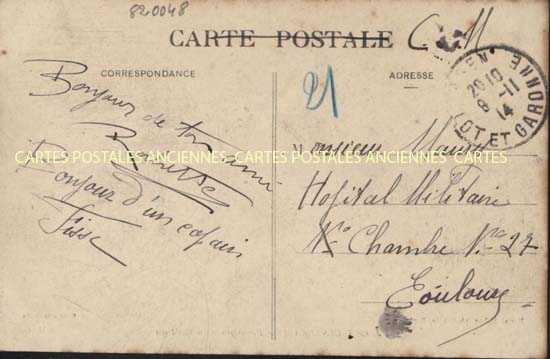 820048
CARTE POSTALE
CORRESPONDANCE
ADRESSE
21
20 10
8-11
14
LOT ET GARONNE
Bonjour de ton
Bonjour d'un copain
Monsieur
Hopital Militaire
Chambre N° 27
Toulouse
CARTES POSTALES ANCIENNES CARTES POSTALES ANCIENNES CARTES POSTALES ANCIENNES